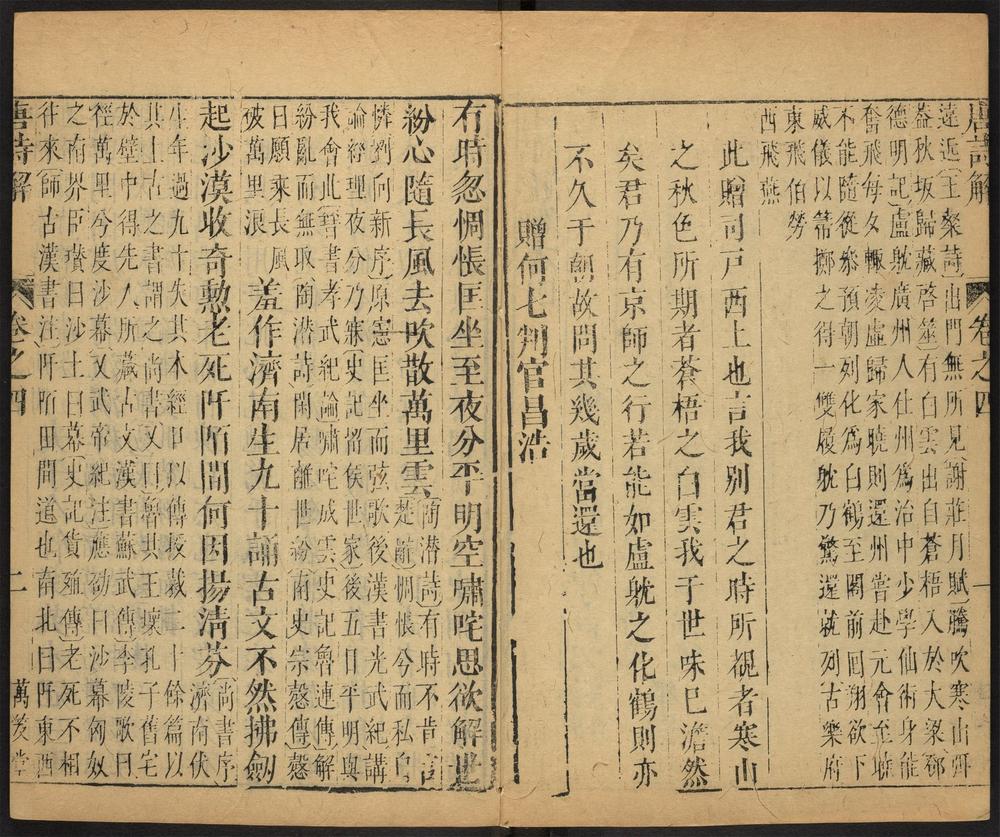 唐詩解 卷之四 一
遠近王粲詩出門無所見謝莊月賦騰吹寒山弭
益秋坂歸藏啓筮有白雲出自蒼梧入於大梁鄧
德明記盧躭廣州人仕州爲治中少學仙術身能
奮飛每夕輒凌虛歸家曉則還州嘗赴元會至晚
不能隨從叅預朝列化爲白鶴至閣前回翔欲下
威儀以箒擲之得一雙履躭乃驚還就列古樂府
東飛伯勞
西飛燕
此贈司戸西上也言我别君之時所視者寒山
之秋色所期者蒼梧之白雲我于世味巳澹然
矣君乃有京師之行若能如盧躭之化鶴則亦
不久于朝故問其幾歲當還也
贈何七判官昌浩
有時忽惆悵匡坐至夜分平明空嘯咤思欲解世
紛心隨長風去吹散萬里雲陶潜詩有時不肯言
楚辭惆悵兮而私自
憐劉向新序原憲匡坐而弦歌後漢書光武紀講
論經理夜分乃寐史記留侯世家後五日平明與
我會此晉書孝武紀論嘯咤成雲史記魯連傳解
紛亂而無取陶潜詩閑居離世紛南史宗慤傳慤
日願乘長風
破萬里浪
羞作濟南生九十誦古文不然拂劒
起沙漠收奇勲老死阡陌間何因揚清芬尚書序
濟南伏
生年過九十失其本經口以傳授裁二十餘篇以
其上古之書謂之尚書又曰魯共王壞孔子舊宅
於壁中得先人所藏古文漢書蘇武傳李陵歌曰
徑萬里兮度沙幕又武帝紀注應劭曰沙幕匈奴
之南界臣瓚曰沙土曰幕史記貨殖傳老死不相
往來師古漢書注阡陌田間道也南北曰阡東西
唐詩解 卷之四 二 萬笈堂